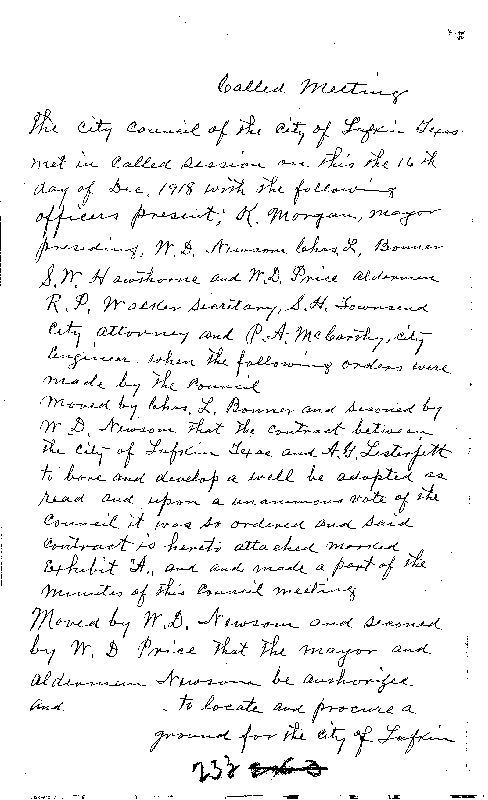 Called Meeting
The City Council of the City of Lufkin Texas
met in Called session on this the 16th
day of Dec. 1918 with the following
officers present; K. Morgan, mayor
presiding, W.D. Newsom Chas. L. Bonner
S.W. Hawthorne and W.D. Price aldermen
R.P. Walker Secretary, S.H. Townsend
City attorney and P.A. McCarthy, city
Engineer. when the following orders were
made by the Council
Moved by Chas. L. Bonner and seconed by
W D. Newsom that the contract between
the City of Lufkin Texas and A.G.
to bore and develop a well be adopted as
read and upon a unanimous vote of the
Council it was so ordered and said
contract is hereto attached marked
Exhibit "A", and and made a part of the
minutes of this Council meeting
Moved by W.D. Newsom and seconed
by W. D Price that the mayor and
aldermen Newsom be authorized
and to locate and procure a
ground for the city of Lufkin
232